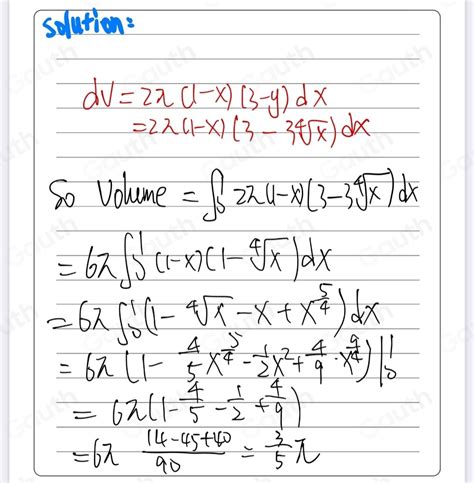 Solution:
dV = 2π(1-x)(3-y)dx
= 2π(1-x)(3-3∜x)dx
So Volume = ∫₀¹ 2π(1-x)(3-3∜x)dx
= 6π∫₀¹ (1-x)(1-∜x)dx
= 6π∫₀¹ (1-∜x-x+x^(5/4))dx
= 6π(1-4/5 x^(5/4)-1/2 x²+4/9·x^(9/4))|₀¹
= 6π(1-4/5-1/2+4/9)
= 6π (14-45+40)/90 = 3/5 π